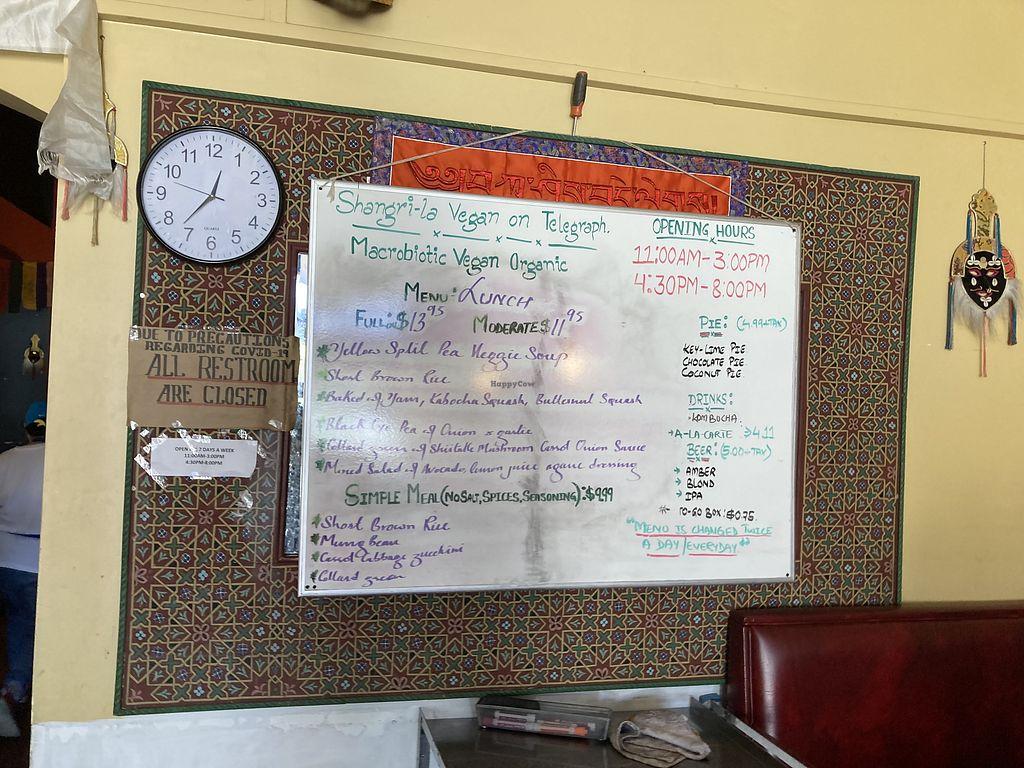 12
1
2
3
4
5
6
7
8
9
10
11
QUARTZ
DUE TO PRECAUTIONS
REGARDING COVID-19
ALL RESTROOM
ARE CLOSED
OPEN 7 DAYS A WEEK
11:00AM-3:00PM
4:30PM-8:00PM
Shangri-la Vegan on Telegraph.
Macrobiotic Vegan Organic
MENU: LUNCH
FULL: $13.95 MODERATE $11.95
*Yellow Split Pea Veggie Soup
*Short Brown Rice
*Baked of Yam, Kabocha Squash, Butternut Squash
*Black Eye Pea of Onion & garlic
*Collard green of Shiitake Mushroom Carrot Onion Sauce
*Mixed Salad of Avocado lemon juice agave dressing
SIMPLE MEAL (NO SALT, SPICES, SEASONING): $9.99
*Short Brown Rice
*Mung Bean
*Carrot Cabbage zucchini
*Collard green
OPENING HOURS
11:00AM-3:00PM
4:30PM-8:00PM
PIE: (4.99+TAX)
KEY-LIME PIE
CHOCOLATE PIE
COCONUT PIE
DRINKS:
KOMBUCHA
→A-LA-CARTE
BEER: (5.00+TAX)
→ AMBER
→ BLOND
→ IPA
* TO-GO BOX: $0.75.
"MENU IS CHANGED TWICE
A DAY/EVERYDAY"
HappyCow